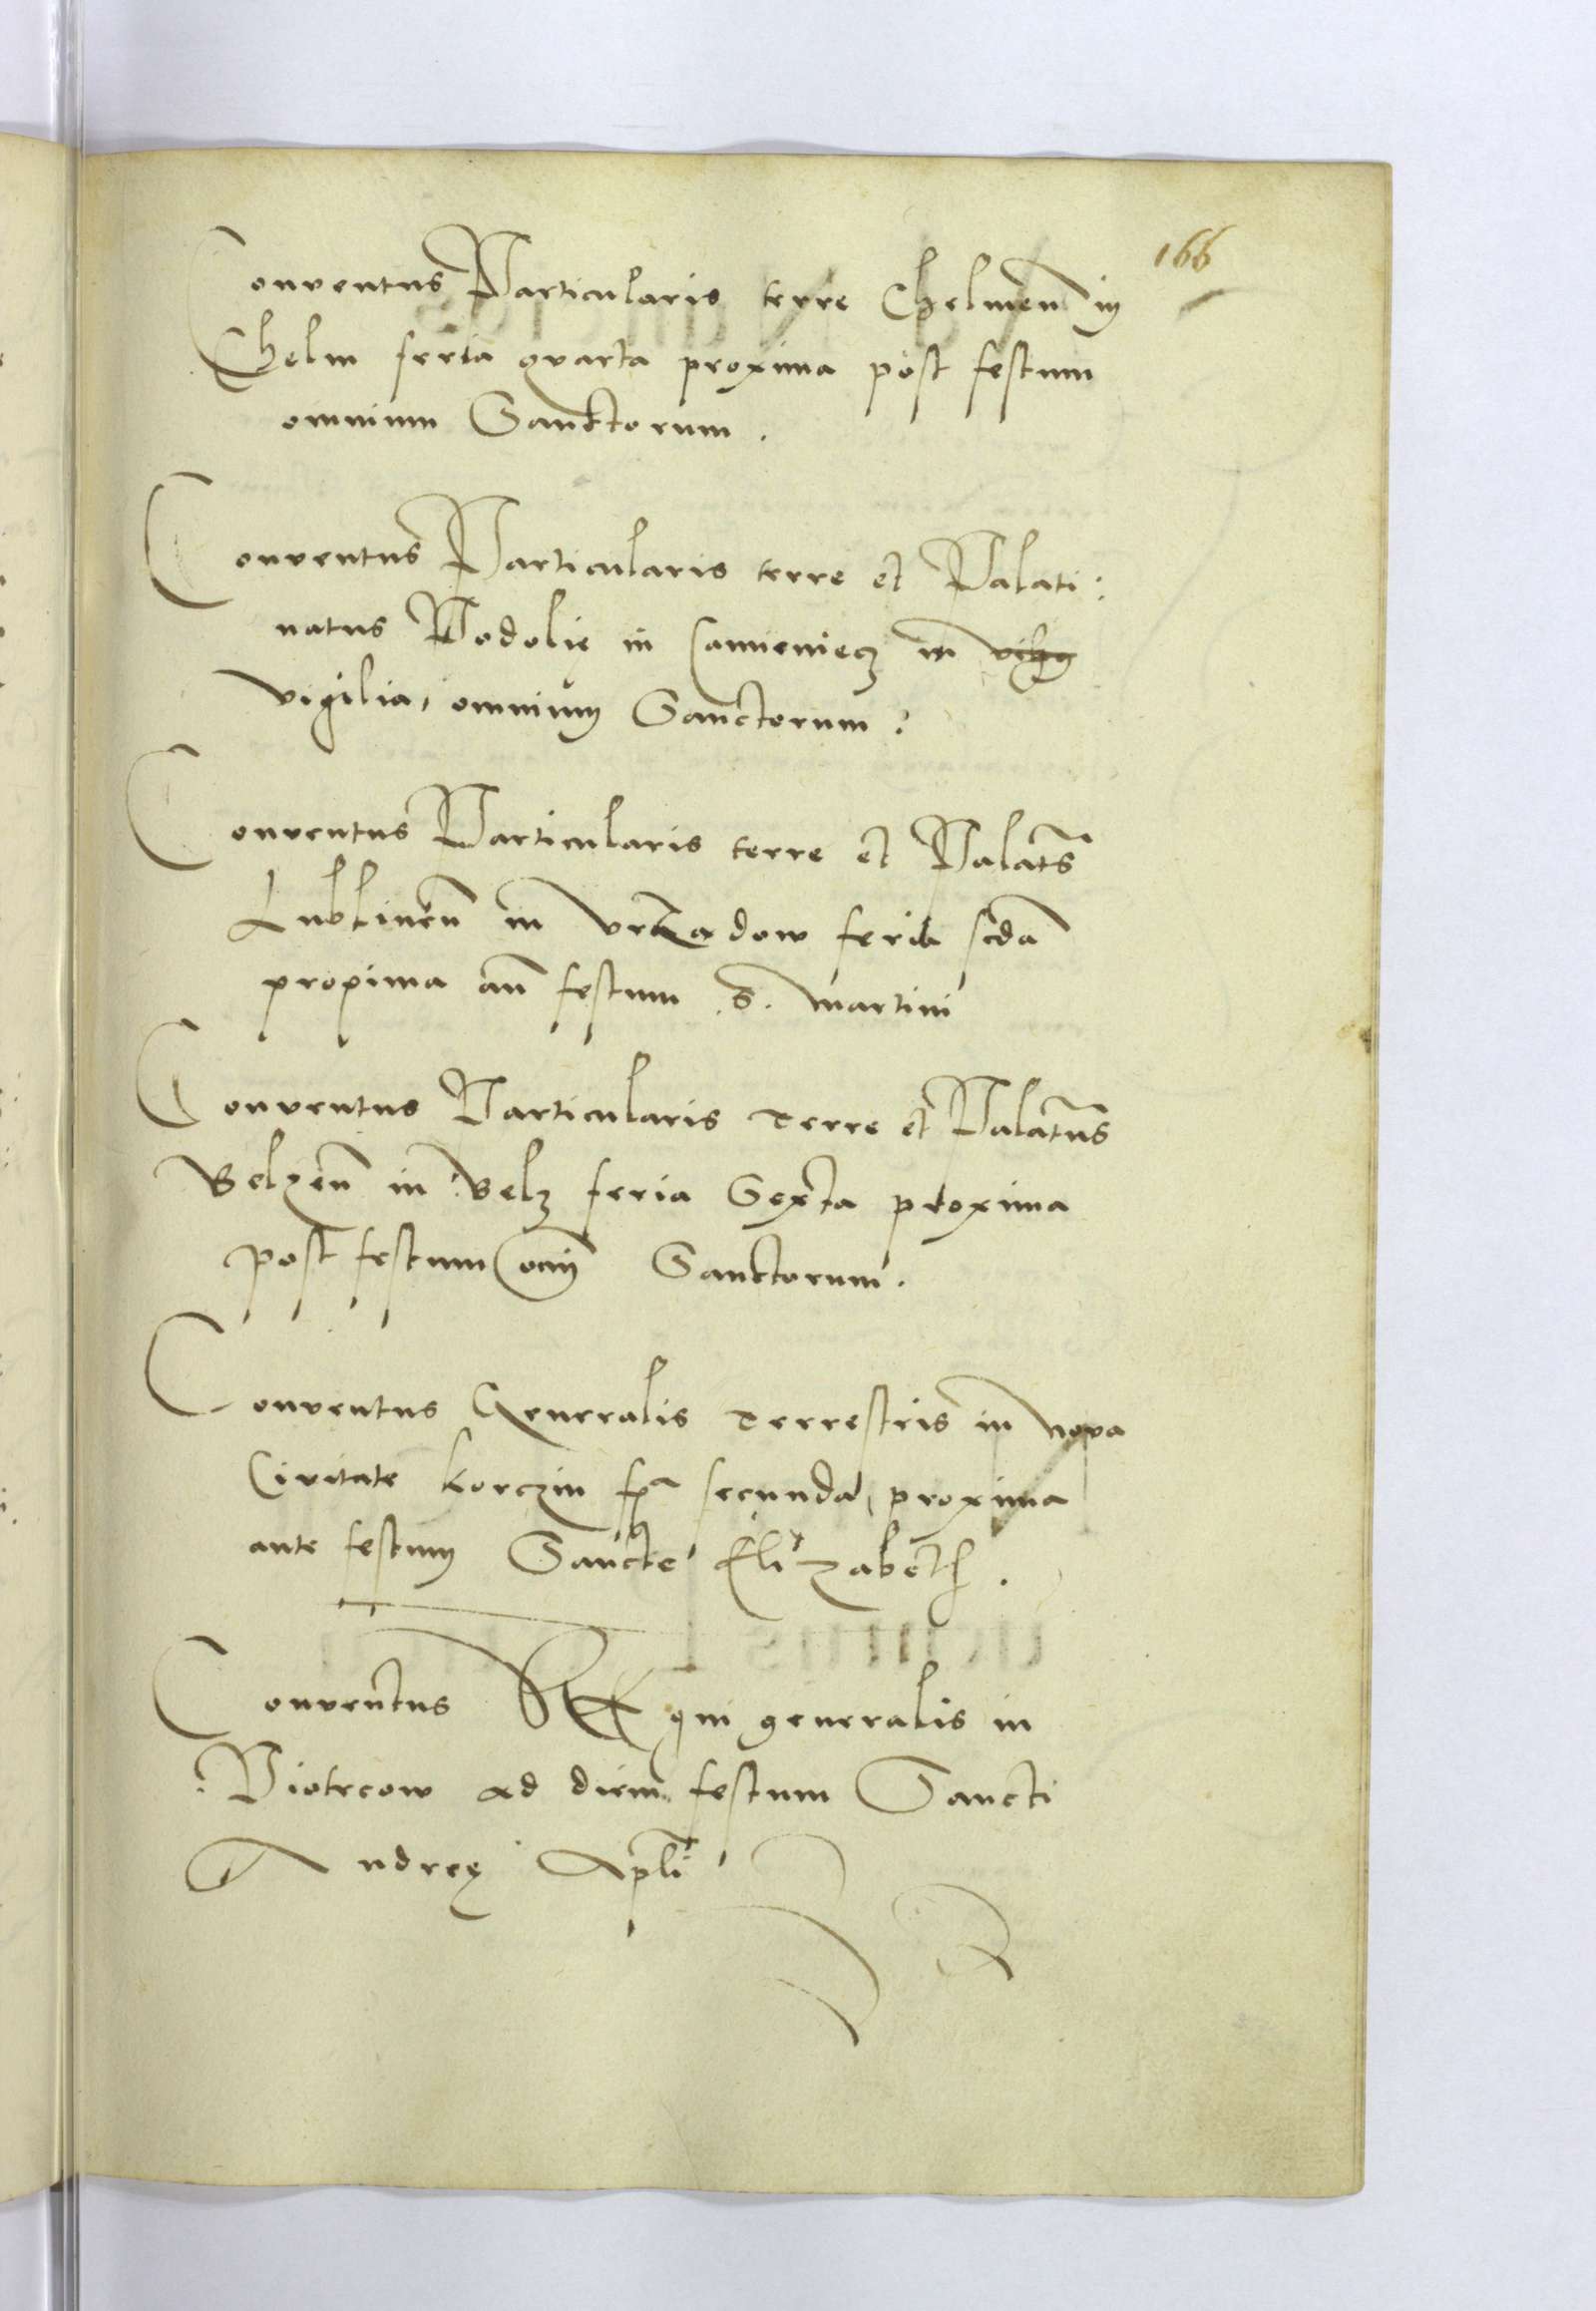 166
Conventus Particularis terre Chelmen̄ in
Chelm feria qvarta proxima post festum
omnium Sanctorum.
Conventus Particularis terre et Palati:
natus Podolie in Camieniecz in
vigilia, omnium Sanctorum:
Conventus Particularis terre et Palatꝰ
Lublineñ in Vrzadow feria scda
proxima añ festum .S. Martini
Conventus Particularis Terre et Palatn̄s
Belzeñ in Belz feria Sexta proxima
post festum om̄i Sanctorum.
Conventus Generalis Terrestris in nova
Civitate Korczin fr̃a secunda, proxima
ante festum Sancte Elizabeth.
Conventus Regni generalis in
Piotrcow ad diem festum Sancti
Andreę Apl̄i